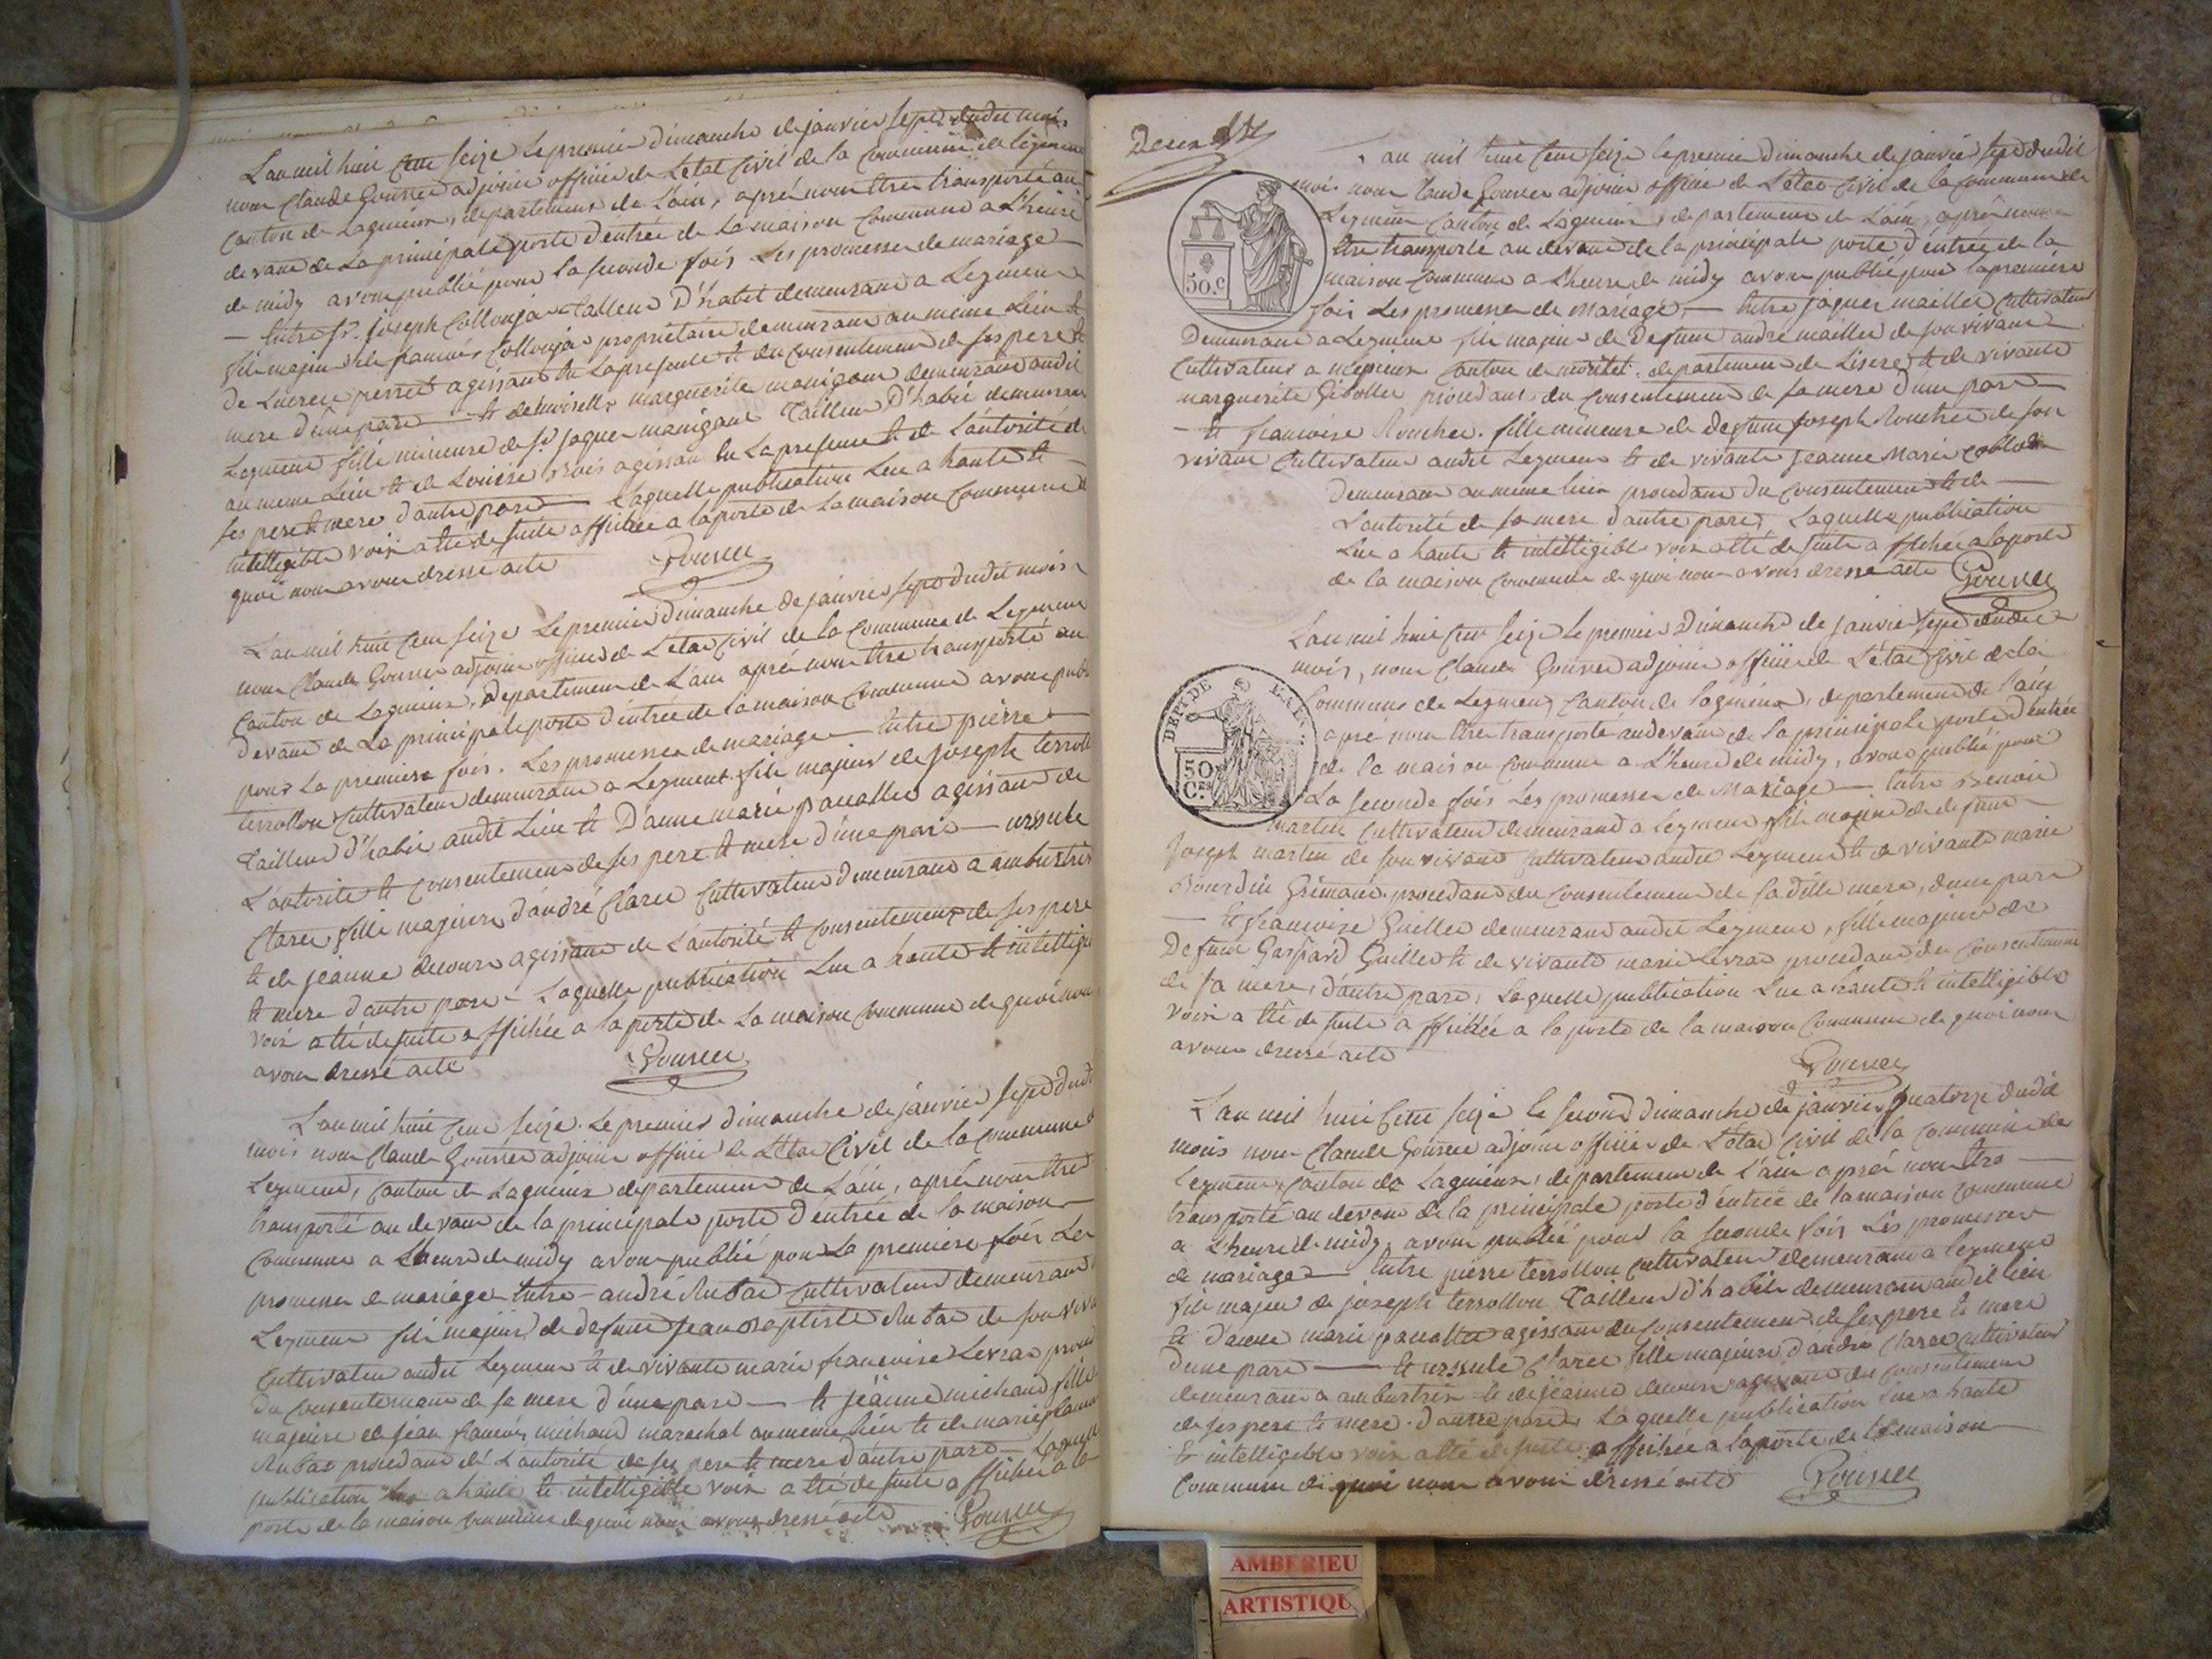 L'an mil huit cent seize le premier dimanche de janvier sept dudit mois
nous Claude Gourret adjoint officier de L'etat Civil de la Commune de legment
Canton de Lagnieux, departement de L'ain, après nous être transporté au
devant de La principale porte d'entrée de La maison Commune a L'heure
de midy avons publié pour la seconde fois Les promesses de mariage
— Entre Sr. joseph Collonja Tailleur D'habit demeurant a Leyment
fils majeur de francois Collonja proprietaire demeurant au même Lieu &
de Lucrece perret agissant en La presence & du consentement de ses pere &
mere d'une part — & demoiselle marguerite manigant demeurant audit
Leyment fille mineure de Sr. jaques manigant Tailleur D'habit demeurant
au meme Lieu & de Louise Bois agissant en La presence & de L'autorité de
ses pere & mere d'autre part — Laquelle publication Lue a haute &
intelligible voix a été de suite affichée a la porte de La maison Commune de
quoi nous avons dressé acte
Gourret
L'an mil huit cent seize Le premier dimanche de janvier sept dudit mois
nous Claude Gourret adjoint officier de L'etat Civil de la Commune de Leyment
Canton de Lagnieux, Departement de L'ain après nous être transporté au
devant de La principale porte d'entrée de la maison Commune avons publ
pour La premiere fois. Les promesses de mariage — Entre pierre
terrollon Cultivateur demeurant a Leyment fils majeur de joseph terroll
Tailleur d'habit audit Lieu & D'anne marie agissant de
L'autorité & consentement de ses pere & mere d'une part — ursule
Claret fille majeure d'andré Claret Cultivateur demeurant a ambutrix
& de jeanne decours agissant de L'autorité & consentement de ses pere
& mere d'autre part — Laquelle publication Lue a haute & intelligi
voix a été de suite affichée a la porte de La maison Commune de quoi nous
avons dressé acte
Gourret
L'an mil huit cent seize. Le premier dimanche de janvier sept dudi
mois nous Claude Gourret adjoint officier de L'Etat Civil de la Commune d
Leyment, Canton de Lagnieux departement de L'ain, après nous être
transporté au devant de la principale porte d'entrée de la maison
Commune a L'heure de midy avons publié pour La premiere fois Les
promesses de mariage Entre — andré Rubat Cultivateur demeurant
Leyment fils majeur de defunt jean Baptiste Rubat de son viva
Cultivateur audit Leyment & de vivante marie francoise Levrat proced
du consentement de sa mere d'une part — & jeanne michaud fille
majeure de jean francois michaud marechal au meme lieu & de marie
Rubat procedant de L'autorité de ses pere & mere d'autre part — Laquelle
publication lue a haute & intelligible voix a été de suite affichée a la
porte de la maison Commune de quoi nous avons dressé acte Gourret
L'an mil huit cent seize le premier dimanche de janvier sept dudit
mois nous Claude Gourret adjoint officier de L'etat Civil de la Commune de
Leyment Canton de Lagnieux, departement de L'ain, après nous
être transporté au devant de la principale porte d'entrée de la
maison Commune a L'heure de midy avons publié pour la première
fois Les promesses de Mariage, — Entre jaques maillet Cultivateur
Demeurant a Leyment fils majeur de Defunt andré maillet de son vivant
Cultivateur a Canton de departement de Lisere & de vivante
marguerite procedant du consentement de sa mere d'une part
— & francoise Rouchet. fille mineure de Defunt joseph Rouchet de son
vivant Cultivateur audit Leyment & de vivante jeanne Marie
Demeurant au meme lieu procedant du consentement & de —
L'autorité de sa mere d'autre part, Laquelle publication
Lue a haute & intelligible voix a été de suite affichée a la porte
de la maison Commune de quoi nous avons dressé acte Gourret
50.c
L'an mil huit cent seize le premier dimanche de janvier sept dudit
mois, nous Claude Gourret adjoint officier de L'état Civil de la
Commune de Leyment, Canton de Lagnieux, departement de l'ain
après nous être transporté au devant de la principale porte d'entrée
de la maison Commune a L'heure de midy, avons publié pour
La seconde fois Les promesses de Mariage — Entre Benoit
martin Cultivateur demeurant a Leyment fils majeur de defunt
joseph martin de son vivant Cultivateur audit Leyment & de vivante marie
Bourdin Grimand procedant du consentement de sa dite mere, d'une part
— & francoise Guillet demeurant audit Leyment, fille majeure de
Defunt Gaspard Guillet & de vivante marie Levrat procedant du consentement
de sa mere, d'autre part, Laquelle publication Lue a haute & intelligible
voix a été de suite affichée a la porte de la maison Commune de quoi nous
avons dressé acte
Gourret
DEPT. DE L'AIN.
50
C.es
L'an mil huit cent seize le second dimanche de janvier, quatorze dudit
mois nous Claude Gourret adjoint officier de L'état Civil de la Commune de
Leyment, Canton de Lagnieux, departement de L'ain après nous être
transporté au devant de la principale porte d'entrée de la maison Commune
a L'heure de midy, avons publié pour la seconde fois Les promesses
de mariage — Entre pierre terrollon Cultivateur demeurant a leyment
fils majeur de joseph terrollon Tailleur d'habit demeurant audit lieu
& d'anne marie agissant du consentement de ses pere & mere
d'une part — & ursule Claret fille majeure d'andré Claret cultivateur
demeurant a ambutrix & de jeanne decours agissant du consentement
de ses pere & mere. d'autre part, Laquelle publication lue a haute
& intelligible voix a été de suite affichée a la porte de la maison
Commune de quoi nous avons dressé acte
Gourret
AMBERIEU
ARTISTIQU